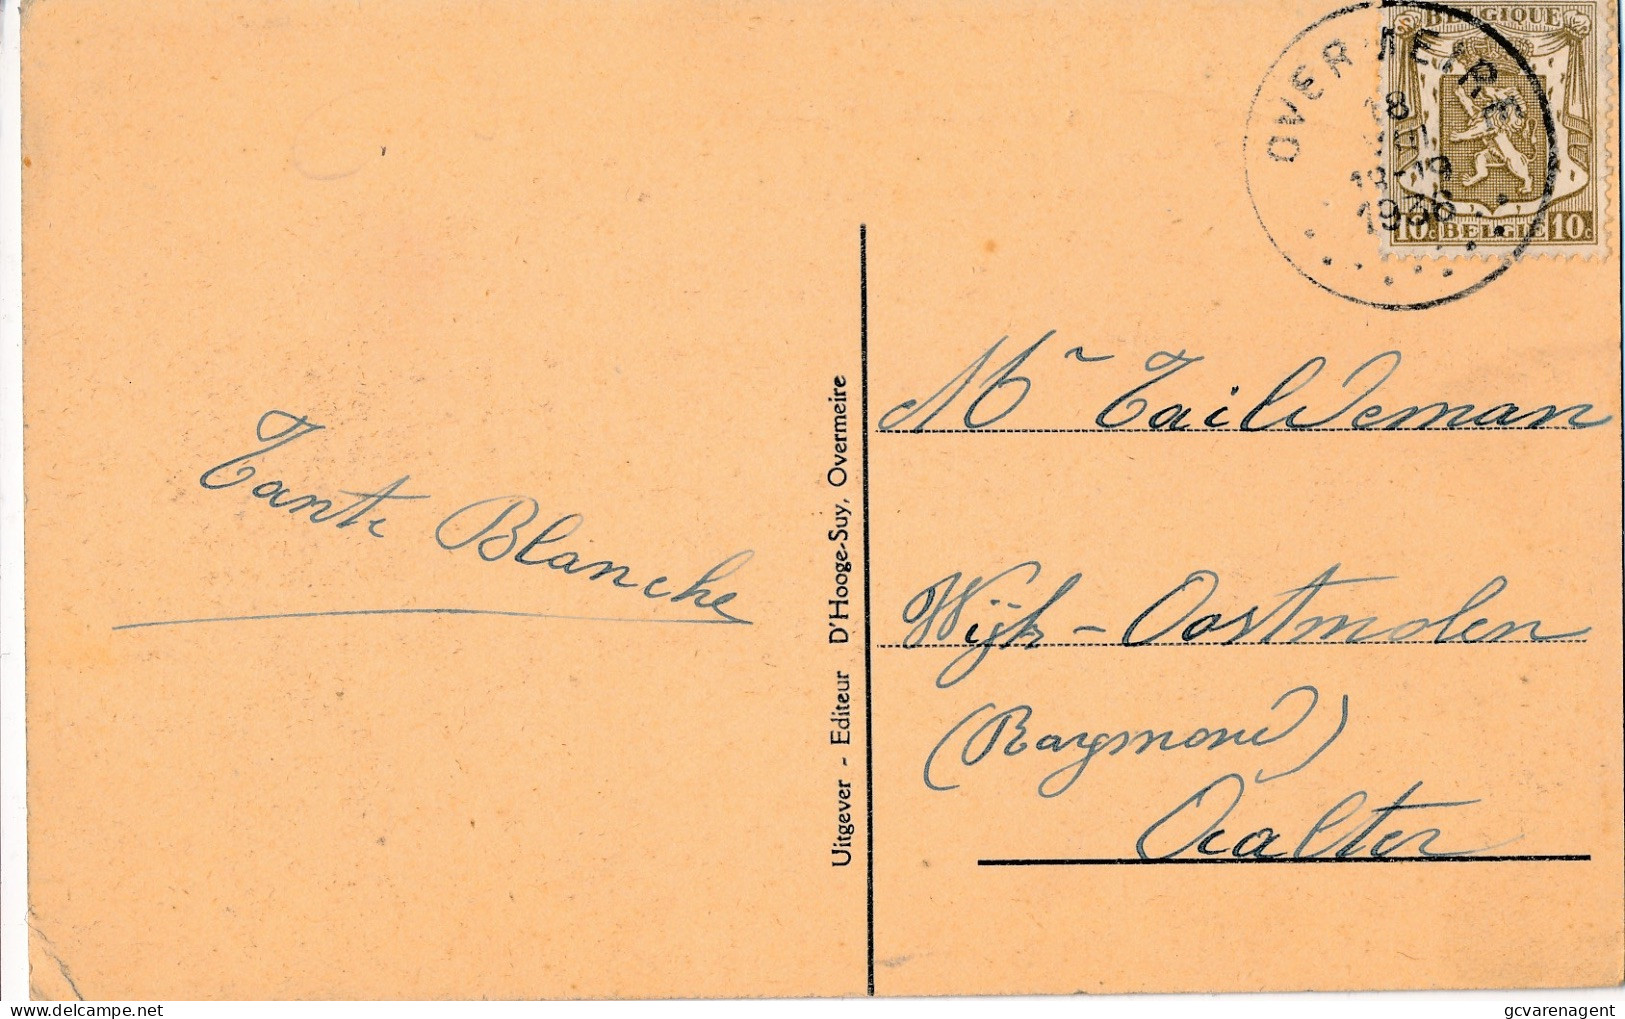 BELGIQUE
OVERMEIRE
18
18-19
1936
10c BELGIE 10c
Tante Blanche
Uitgever - Editeur D'Hooge-Suy, Overmeire
Mr Taildeman
Wijk - Oostmolen
(Raymond)
Aalter
gcvarenagent